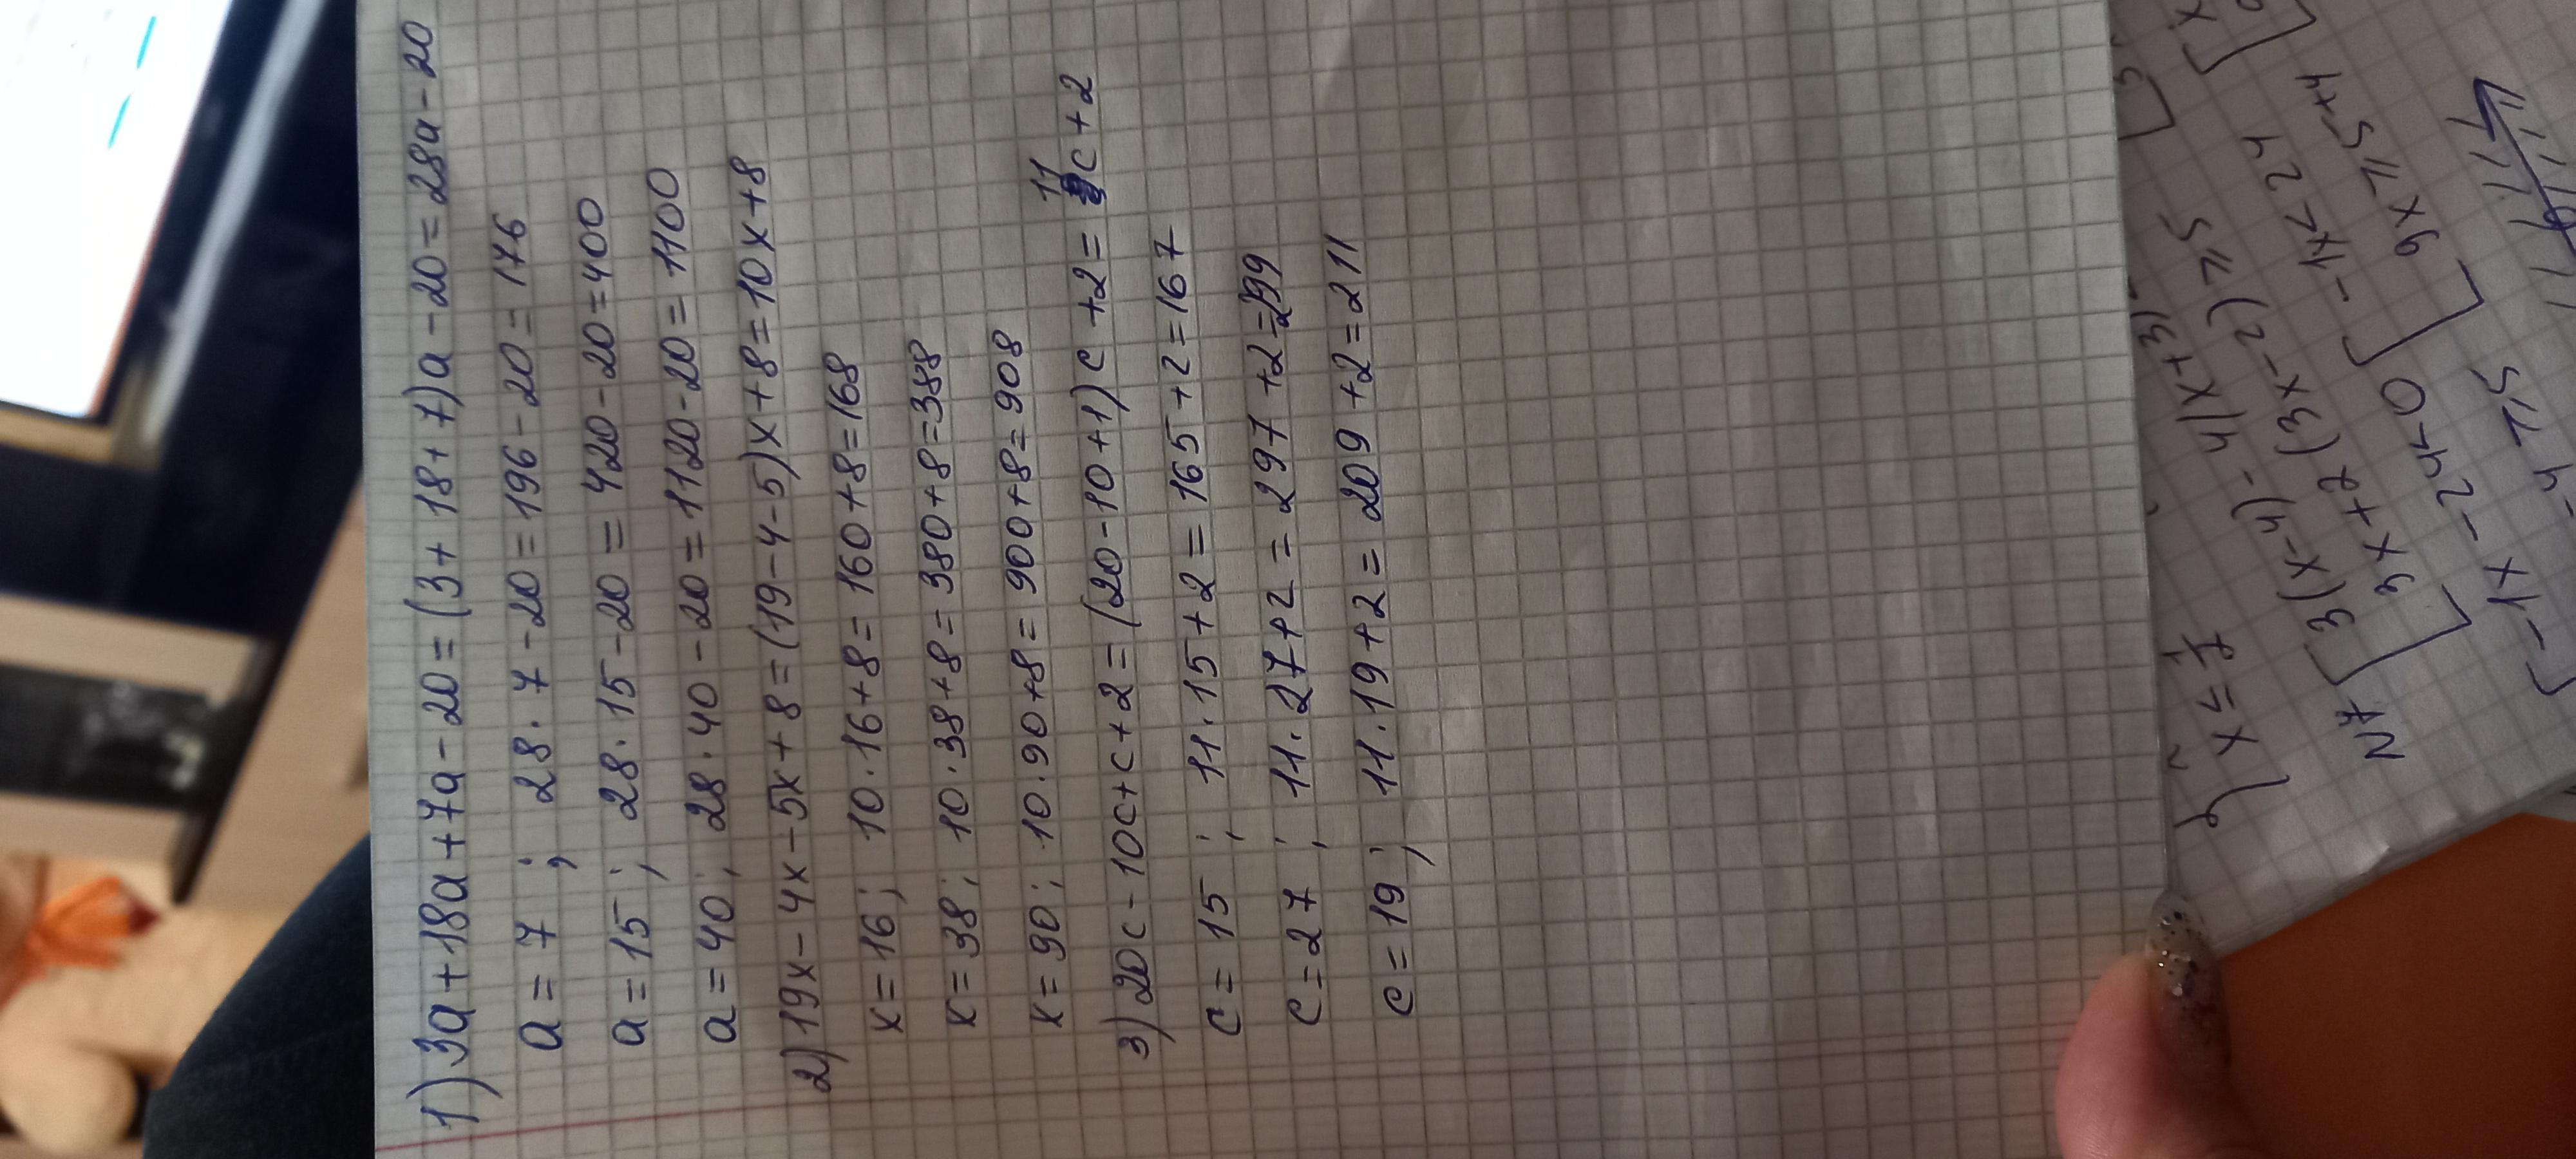 1) 3a+18a+7a-20=(3+18+7)a-20=28a-20
a=7; 28·7-20=196-20=176
a=15; 28·15-20=420-20=400
a=40; 28·40-20=1120-20=1100
2) 19x-4x-5x+8=(19-4-5)x+8=10x+8
x=16; 10·16+8=160+8=168
x=38; 10·38+8=380+8=388
x=90; 10·90+8=900+8=908
3) 20c-10c+c+2=(20-10+1)c+2=11c+2
c=15; 11·15+2=165+2=167
c=27; 11·27+2=297+2=299
c=19; 11·19+2=209+2=211
N7 3(x-4)-4(x+3)
3x+2(3x-2)⩾5
-1x-24<0 -1x<24
-4⩾5 9x⩾5+4